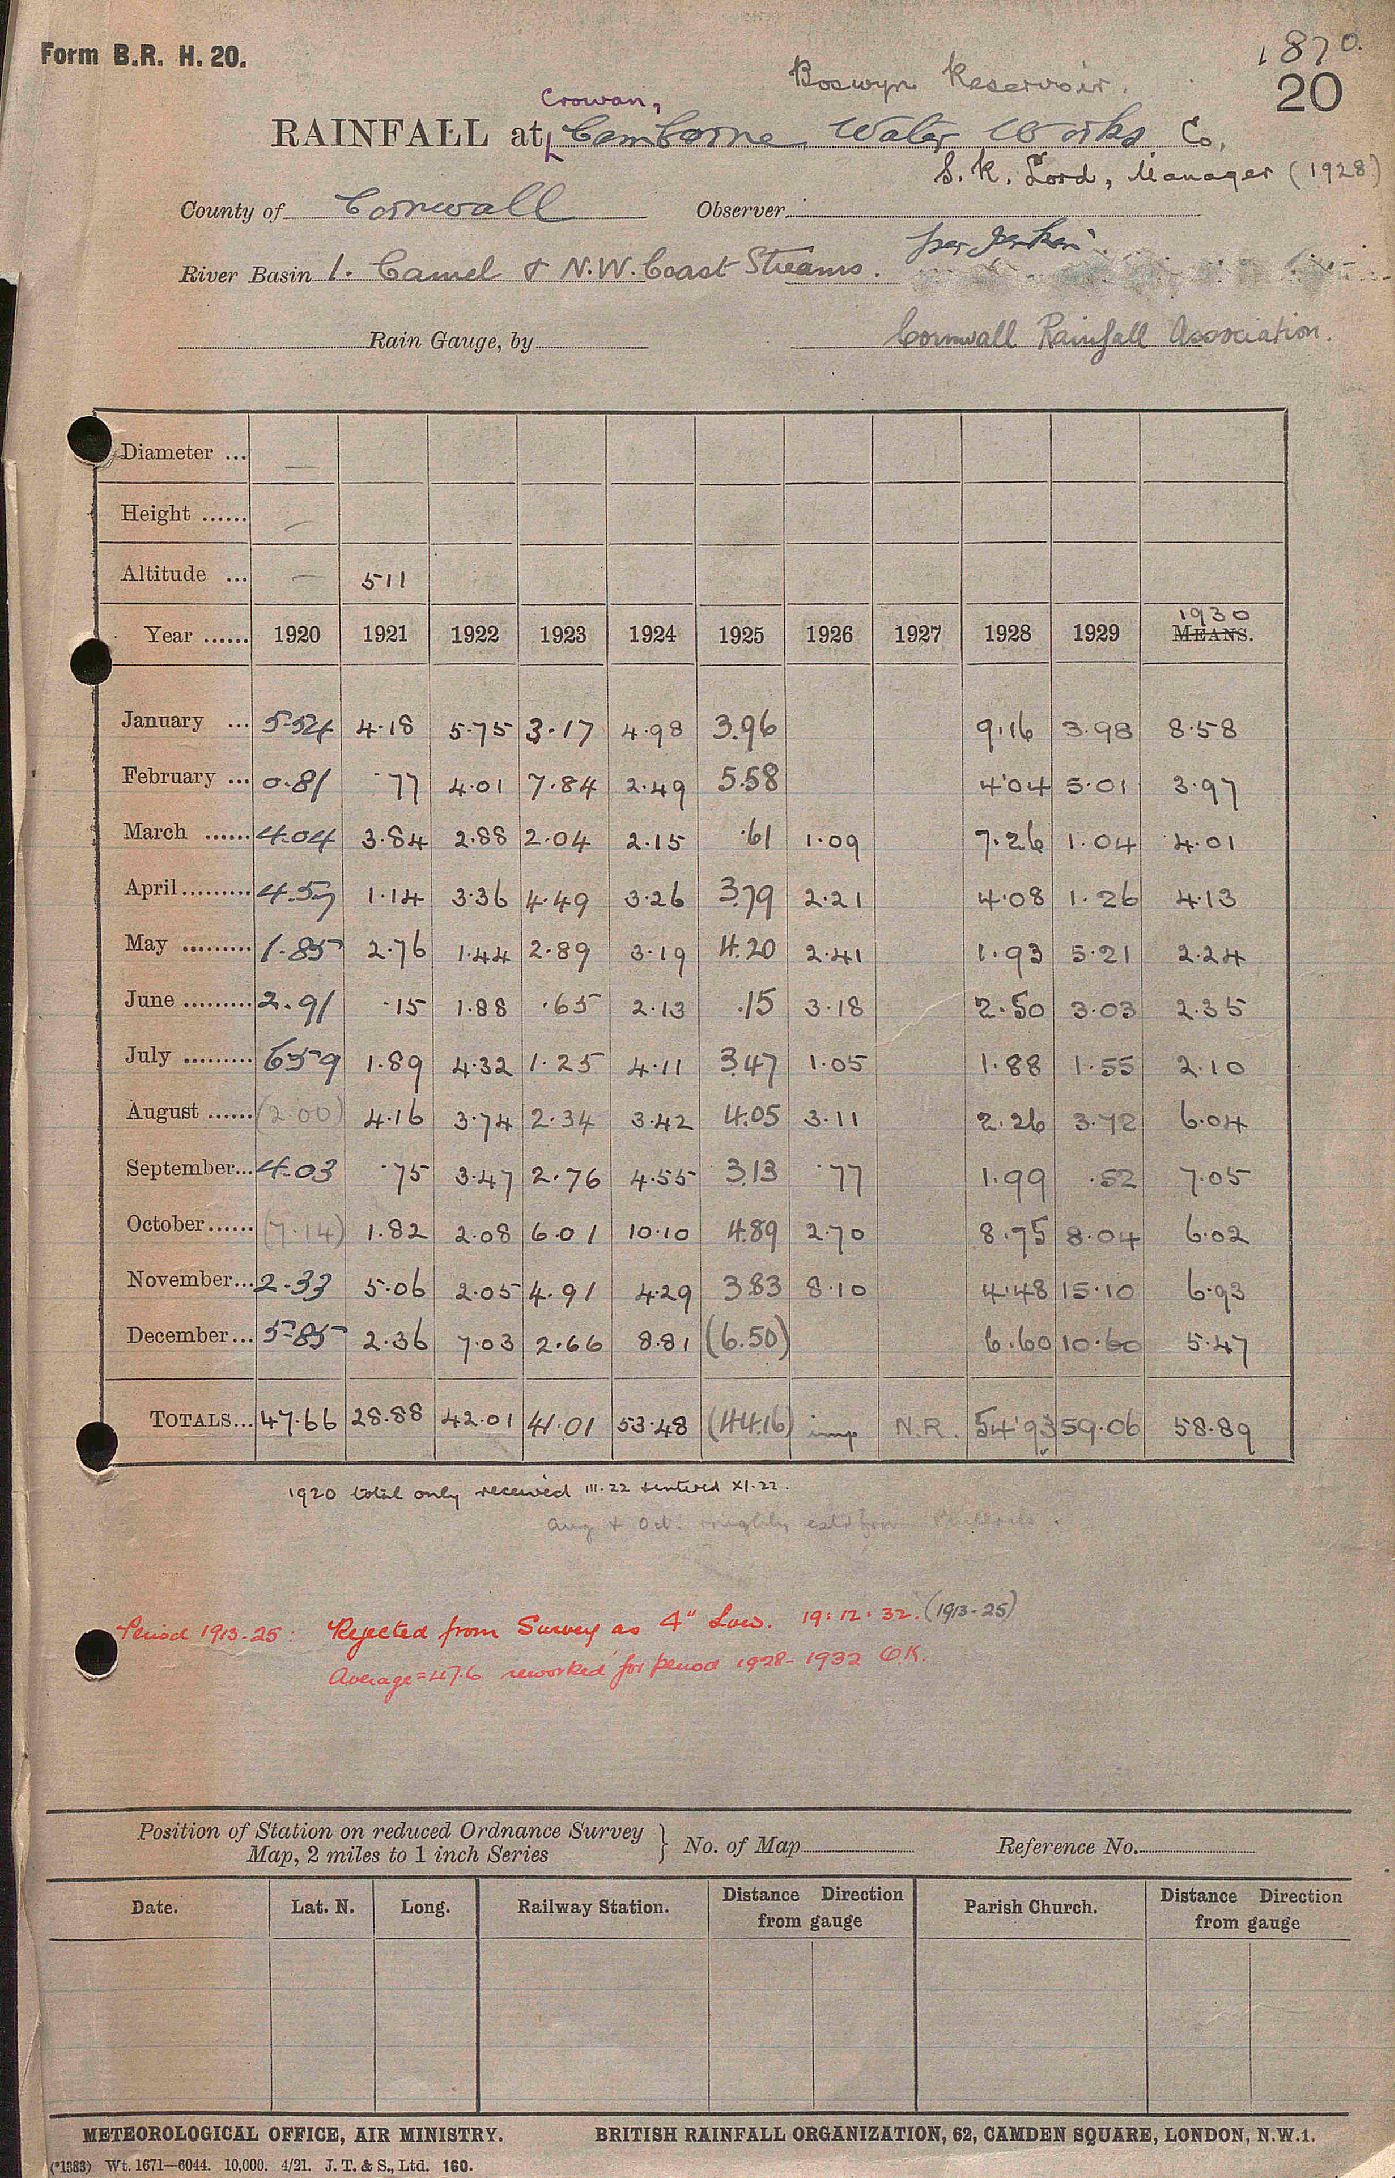 Form B.R. H. 20.
1870.
20
Boswyn Reservoir.
Crowan,
RAINFALL at Camborne Water Works Co.
S. R. Lord, Manager (1928)
County of Cornwall Observer
River Basin 1. Camel & N.W. Coast Streams.
Rain Gauge, by
Cornwall Rainfall Association.
Diameter ... —
Height ...... —
Altitude ... — 511
1930
Year ...... 1920 1921 1922 1923 1924 1925 1926 1927 1928 1929 MEANS.
January ... 5.54 4.18 5.75 3.17 4.98 3.96 9.16 3.98 8.58
February ... 0.81 .77 4.01 7.84 2.49 5.58 4.04 5.01 3.97
March ...... 4.04 3.84 2.88 2.04 2.15 .61 1.09 7.26 1.04 4.01
April ......... 4.57 1.14 3.36 4.49 3.26 3.79 2.21 4.08 1.26 4.13
May ......... 1.85 2.76 1.44 2.89 3.19 4.20 2.41 1.93 5.21 2.24
June ......... 2.91 .15 1.88 .65 2.13 .15 3.18 2.50 3.03 2.35
July ......... 6.59 1.89 4.32 1.25 4.11 3.47 1.05 1.88 1.55 2.10
August ...... (2.00) 4.16 3.74 2.34 3.42 4.05 3.11 2.26 3.72 6.04
September... 4.03 .75 3.47 2.76 4.55 3.13 .77 1.99 .52 7.05
October ...... (7.14) 1.82 2.08 6.01 10.10 4.89 2.70 8.75 8.04 6.02
November... 2.33 5.06 2.05 4.91 4.29 3.83 8.10 4.48 15.10 6.93
December ... 5.85 2.36 7.03 2.66 8.81 (6.50) 6.60 10.60 5.47
TOTALS... 47.66 28.88 42.01 41.01 53.48 (44.16) imp N.R. 54.93 59.06 58.89
1920 total only received III.22 & entered XI.22.
Aug & Oct. roughly estd from
Period 1913-25: Rejected from Survey as 4" Low. 19:12:32. (1913-25)
Average = 47.6 reworked for period 1928-1932 O.K.
Position of Station on reduced Ordnance Survey
Map, 2 miles to 1 inch Series } No. of Map Reference No.
Date. Lat. N. Long. Railway Station. Distance Direction from gauge Parish Church. Distance Direction from gauge
METEOROLOGICAL OFFICE, AIR MINISTRY. BRITISH RAINFALL ORGANIZATION, 62, CAMDEN SQUARE, LONDON, N.W.1.
(*1383) Wt. 1671—6044. 10,000. 4/21. J. T. & S., Ltd. 160.